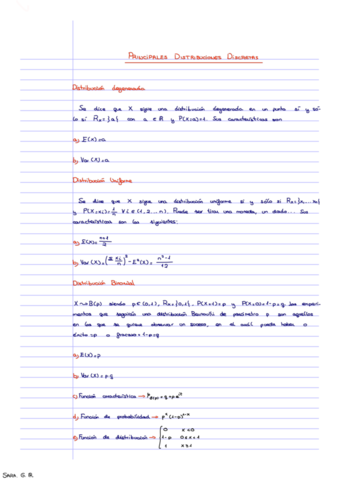 PRINCIPALES DISTRIBUCIONES DISCRETAS
Distribución degenerada
Se dice que X sigue una distribución degenerada en un punto sí y só-
lo sí Rx={a} con a∈R y P(X=a)=1. Sus características son:
a) E(X)=a
b) Var(X)=a
Distribución Uniforme
Se dice que X sigue una distribución uniforme sí y sólo sí Rx={x₁...xₙ}
y P(X=xᵢ)=1/n ∀ i∈{1,2...n}. Puede ser tirar una moneda, un dado... Sus
características son las siguientes:
a) E(X)=(n+1)/2
b) Var(X)= - E²(X) = (n²-1)/12
Distribución Binomial
X~B(p) siendo p∈(0,1), Rx={0,1}, P(X=1)=p y P(X=0)=1-p=q. Los experi-
mentos que seguirán una distribución Bernoulli de parámetro p son aquellos
en los que se quiere observar un suceso, en el cual puede haber
éxito=p o fracaso=1-p=q.
a) E(X)=p
b) Var(X)=p·q
c) Función característica →
d) Función de probabilidad → pˣ(1-p)¹⁻ˣ
e) Función de distribución → { 0 x<0
1-p 0≤x<1
1 x≥1
SARA G.R.